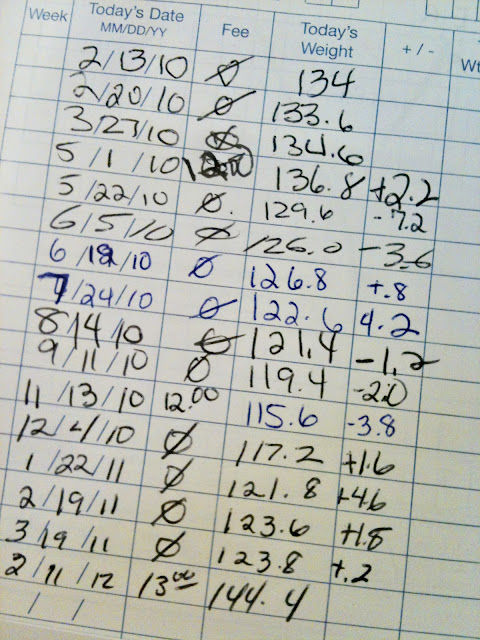 Week Today's Date MM/DD/YY Fee Today's Weight + / - Wt
2/13/10 Ø 134
2/20/10 Ø 133.6
3/27/10 Ø 134.6
5/1/10 12.00 136.8 +2.2
5/22/10 Ø. 129.6 -7.2
6/5/10 Ø 126.0 -3.6
6/12/10 Ø 126.8 +.8
7/24/10 Ø 122.6 4.2
8/14/10 Ø 121.4 -1.2
9/11/10 Ø 119.4 -2.0
11/13/10 12.00 115.6 -3.8
12/4/10 Ø 117.2 +1.6
1/22/11 Ø 121.8 +4.6
2/19/11 Ø 123.6 +1.8
3/19/11 Ø 123.8 +.2
2/11/12 13.00 144.4
/ /